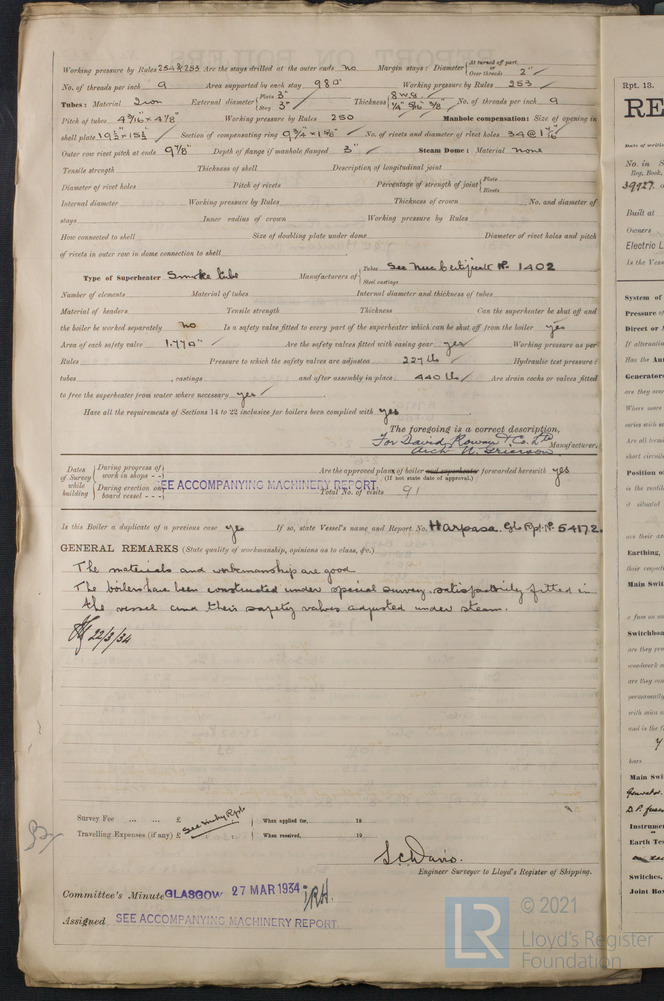 Working pressure by Rules 254 & 253 Are the stays drilled at the outer ends no Margin stays: Diameter { At turned off part, or Over threads 2"
No. of threads per inch 9 Area supported by each stay 98□" Working pressure by Rules 253
Tubes: Material Iron External diameter { Plain 3" Stay 3" Thickness { 8 W.G. 1/4" 5/16" 3/8" No. of threads per inch 9
Pitch of tubes 4 3/16 x 4 1/8" Working pressure by Rules 250 Manhole compensation: Size of opening in
shell plate 19½" x 15½" Section of compensating ring 9¾" x 1 5/16" No. of rivets and diameter of rivet holes 34 @ 1 7/16"
Outer row rivet pitch at ends 9 7/8" Depth of flange if manhole flanged 3" Steam Dome: Material none
Tensile strength Thickness of shell Description of longitudinal joint
Diameter of rivet holes Pitch of rivets Percentage of strength of joint { Plate Rivets
Internal diameter Working pressure by Rules Thickness of crown No. and diameter of
stays Inner radius of crown Working pressure by Rules
How connected to shell Size of doubling plate under dome Diameter of rivet holes and pitch
of rivets in outer row in dome connection to shell
Type of Superheater Smoke tube Manufacturers of { Tubes Steel castings See Certificate No. 1402
Number of elements Material of tubes Internal diameter and thickness of tubes
Material of headers Tensile strength Thickness Can the superheater be shut off and
the boiler be worked separately no Is a safety valve fitted to every part of the superheater which can be shut off from the boiler yes
Area of each safety valve 1.770□" Are the safety valves fitted with easing gear yes Working pressure as per
Rules Pressure to which the safety valves are adjusted 227 lb Hydraulic test pressure:
tubes , castings and after assembly in place 440 lb Are drain cocks or valves fitted
to free the superheater from water where necessary yes
Have all the requirements of Sections 14 to 22 inclusive for boilers been complied with yes
The foregoing is a correct description,
For David Rowan & Co. Ltd Manufacturer.
Arch N. Grierson
Dates of Survey while building { During progress of work in shops - - During erection on board vessel - - -
SEE ACCOMPANYING MACHINERY REPORT.
Are the approved plans of boiler and superheater forwarded herewith yes
(If not state date of approval.)
Total No. of visits 91
Is this Boiler a duplicate of a previous case yes If so, state Vessel's name and Report No. Harpasa. Gls Rpt. No. 54172.
GENERAL REMARKS (State quality of workmanship, opinions as to class, &c.)
The materials and workmanship are good
The boilers have been constructed under special survey, satisfactorily fitted in
the vessel and their safety valves adjusted under steam.
22/3/34
Survey Fee ... ... £ See Mchy Rpt When applied for, 19
Travelling Expenses (if any) £ When received, 19
S. C. Davis.
Engineer Surveyor to Lloyd's Register of Shipping.
Committee's Minute GLASGOW 27 MAR 1934
Assigned SEE ACCOMPANYING MACHINERY REPORT.
Rpt. 13.
RE
No. in S
Reg. Book,
39927.
Built at
Owners
Electric L
Is the Vess
System of
Pressure of
Direct or A
If alternatin
Has the Aut
Generators
are they over
Where more
Position o
is the ventila
if situated
Earthing,
Main Swit
Switchboa
bars
Main Swit
D.P. fuses
Instrumen
Earth Tes
Switches,
Joint Box
© 2021
Lloyd's Register
Foundation
LR